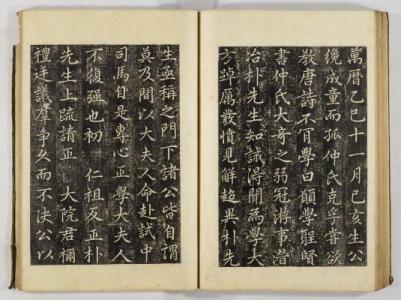 萬曆乙巳十一月己亥生公
纔成童而孤仲氏克孚嘗欲
教唐詩不肯學曰願學聖賢
書仲氏大奇之弱冠將事潛
冶朴先生知誠得聞爲學大
方踔厲發憤見解超異朴先
生亟稱之門下諸公皆自謂
莫及間以大夫人命赴試中
司馬自是專心正學大夫人
不復强也初 仁祖反正朴
先生上疏請正 大院君禰
禮廷議羣爭久而不決公以